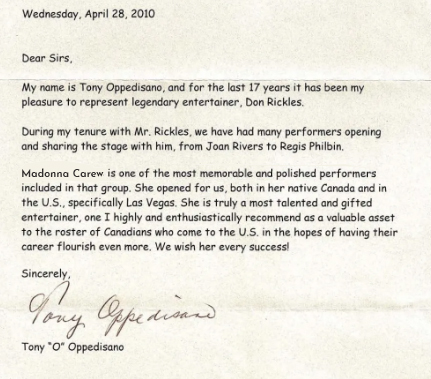 Wednesday, April 28, 2010
Dear Sirs,
My name is Tony Oppedisano, and for the last 17 years it has been my
pleasure to represent legendary entertainer, Don Rickles.
During my tenure with Mr. Rickles, we have had many performers opening
and sharing the stage with him, from Joan Rivers to Regis Philbin.
Madonna Carew is one of the most memorable and polished performers
included in that group. She opened for us, both in her native Canada and in
the U.S., specifically Las Vegas. She is truly a most talented and gifted
entertainer, one I highly and enthusiastically recommend as a valuable asset
to the roster of Canadians who come to the U.S. in the hopes of having their
career flourish even more. We wish her every success!
Sincerely,
Tony Oppedisano
Tony "O" Oppedisano